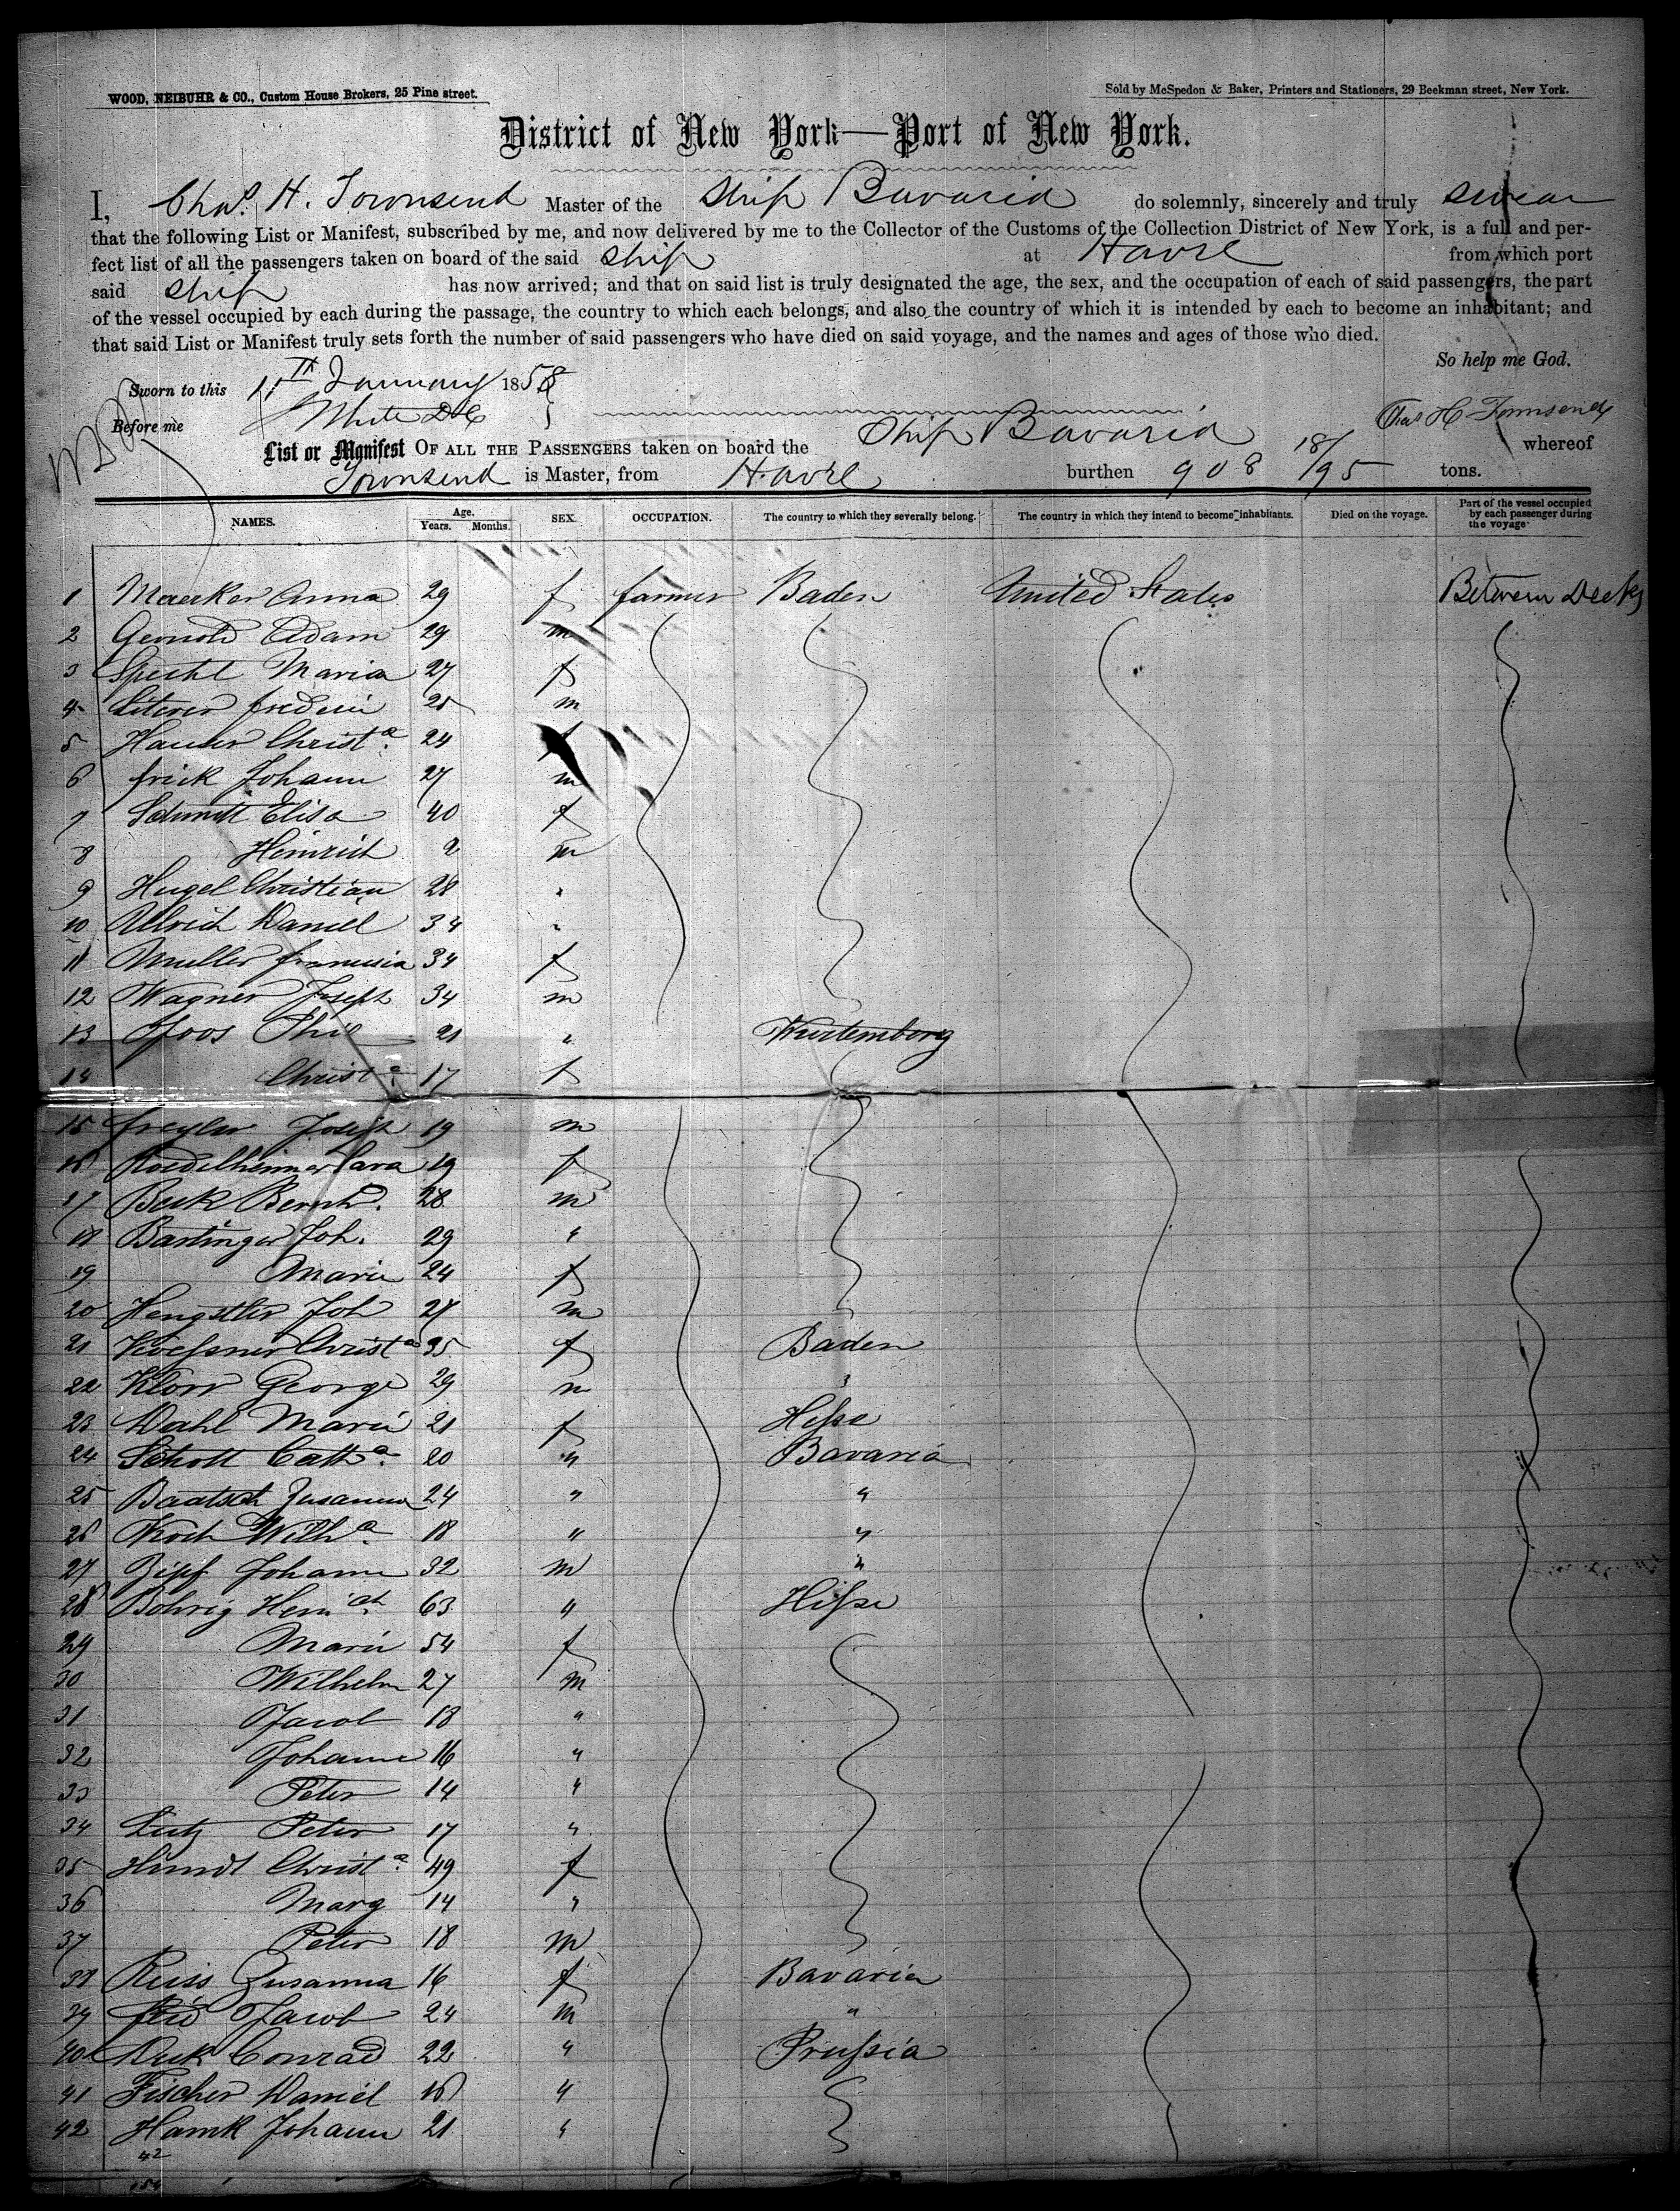 WOOD, NEIBUHR & CO., Custom House Brokers, 25 Pine street.
Sold by McSpedon & Baker, Printers and Stationers, 29 Beekman street, New York.
District of New York—Port of New York.
I, Chas. H. Townsend Master of the Ship Bavaria do solemnly, sincerely and truly swear
that the following List or Manifest, subscribed by me, and now delivered by me to the Collector of the Customs of the Collection District of New York, is a full and per-
fect list of all the passengers taken on board of the said ship at Havre from which port
said ship has now arrived; and that on said list is truly designated the age, the sex, and the occupation of each of said passengers, the part
of the vessel occupied by each during the passage, the country to which each belongs, and also the country of which it is intended by each to become an inhabitant; and
that said List or Manifest truly sets forth the number of said passengers who have died on said voyage, and the names and ages of those who died.
So help me God.
Sworn to this 11th January 1858
Before me White DC
Chas H Townsend
List or Manifest OF ALL THE PASSENGERS taken on board the Ship Bavaria whereof
Townsend is Master, from Havre burthen 908 18/95 tons.
NAMES. Age. Years. Months. SEX. OCCUPATION. The country to which they severally belong. The country in which they intend to become inhabitants. Died on the voyage. Part of the vessel occupied by each passenger during the voyage
1 Maerker Anna 29 f farmer Baden United States Between Decks
2 Adam 29 m
3 Specht Maria 27 f
4 25 m
5 Hauser Christa. 24 f
6 frick Johann 27 m
7 Schmitt Elisa 40 f
8 Heinrich 2 m
9 Hugel Christian 28 "
10 Ullrich Daniel 34 "
11 Mueller 34 f
12 Wagner Joseph 34 m
13 Joos 21 " Wurtemberg
14 Christa. 17 f
15 Joseph 19 m
16 Roedelheimer 19 f
17 Beck Bernhd. 28 m
18 Bastinger Joh. 29 "
19 Marie 24 f
20 Hengstler Joh 27 m
21 Koessner Christa 35 f Baden
22 Klorr George 29 m "
23 Dahl Marie 21 f Hesse
24 Schott Catha. 20 " Bavaria
25 Baatsch Zusanna 24 " "
26 Koch Wilha. 18 " "
27 Zipf Johann 32 m "
28 Bohrig Heinrich 63 " Hesse
29 Marie 54 f
30 Wilhelm 27 m
31 Jacob 18 "
32 Johann 16 "
33 Peter 14 "
34 Lutz Peter 17 "
35 Hundt Christa. 49 f
36 Marg 14 "
37 Peter 18 m
38 Reiss Zusanna 16 f Bavaria
39 Jacob 24 m "
40 Conrad 22 " Prussia
41 Fischer Daniel 16 "
42 Hamk Johann 21 "
42